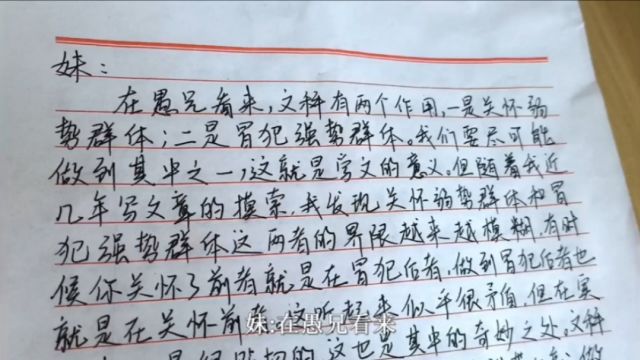 妹：
在愚兄看来，文科有两个作用，一是关怀弱
势群体；二是冒犯强势群体。我们要尽可能
做到其中之一，这就是学文的意义。但随着我近
几年写文章的摸索，我发现关怀弱势群体和冒
犯强势群体这两者的界限越来越模糊，有时
候你关怀了前者就是在冒犯后者，做到冒犯后者也
就是在关怀前者，这听起来似乎很矛盾，但在实
的，这也是其中的奇妙之处。文科
妹:在愚兄看来